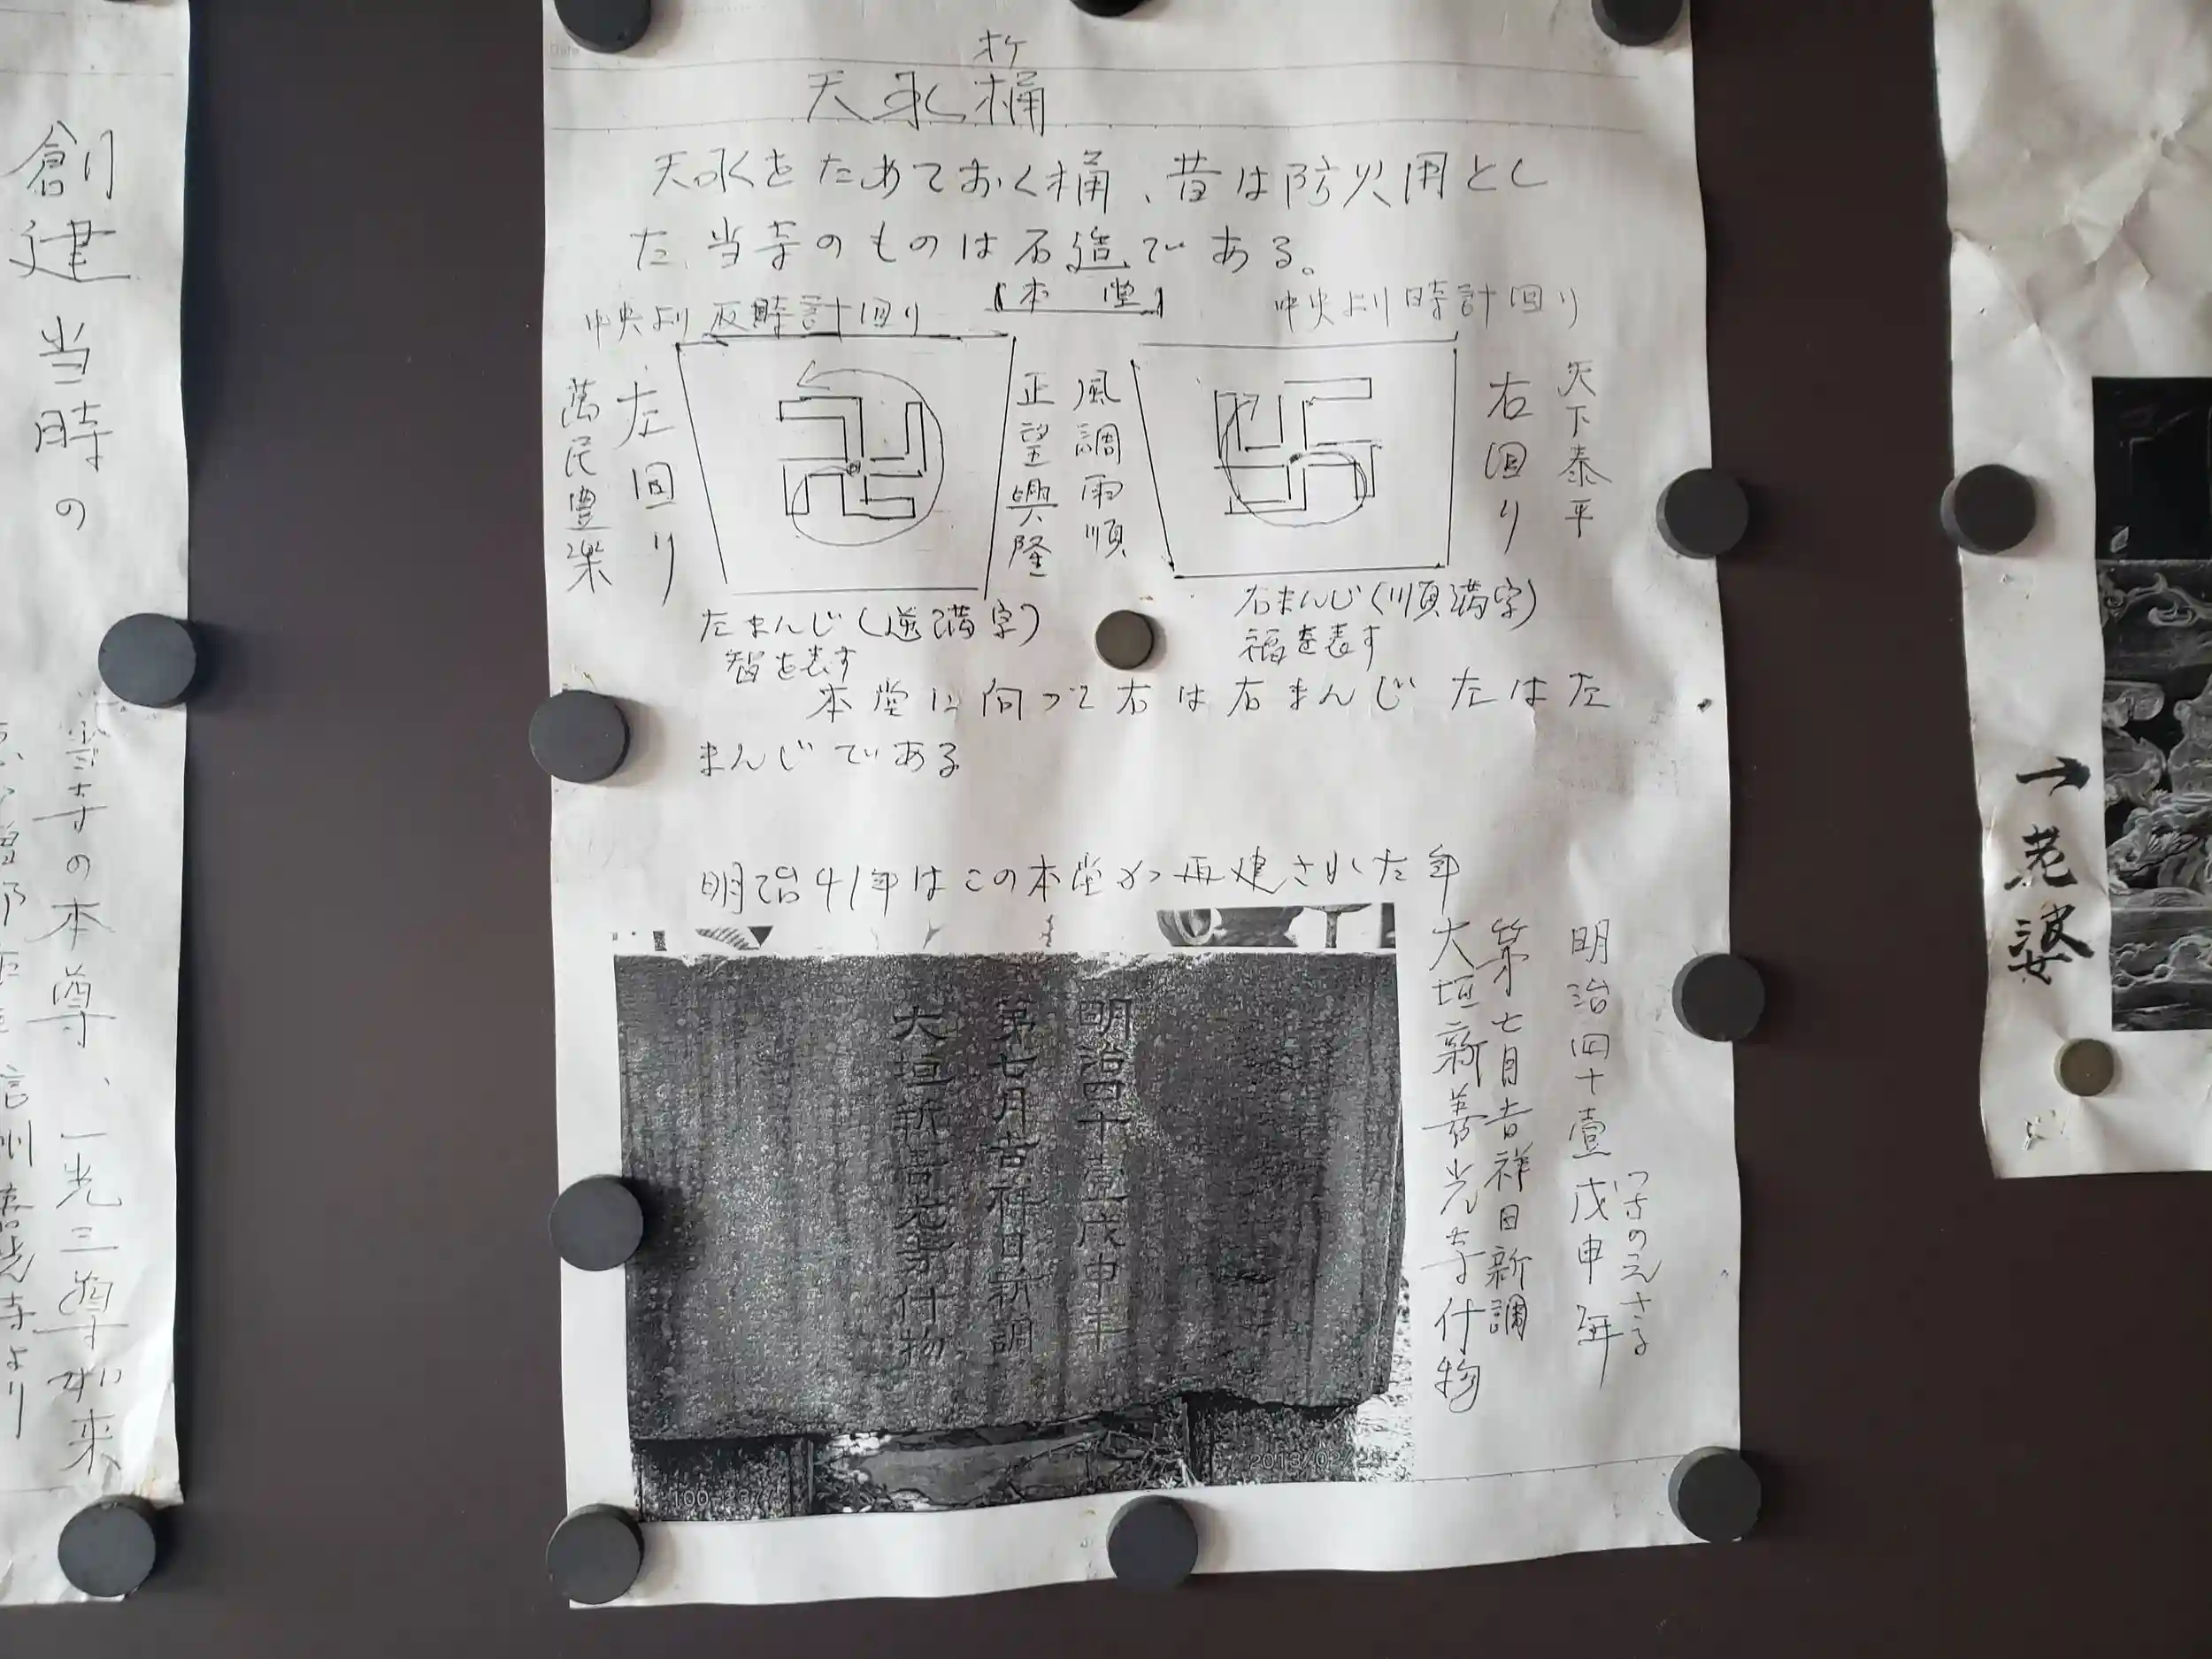 創建当時の
当寺の本尊、一光三尊如来
信州善光寺より
Date
オケ
天水桶
天水をためておく桶、昔は防火用とし
た。当寺のものは石造である。
【本堂】
中央より反時計回り
中央より時計回り
天下泰平
右回り
風調雨順
正望興隆
左回り
萬民豊楽
左まんじ(逆満字)
智を表す
右まんじ(順満字)
福を表す
本堂に向って右は右まんじ 左は左
まんじである
明治41年はこの本堂が再建された年
明治四十壹戊申年
つちのえさる
第七月吉祥日新調
大垣新善光寺什物
明治四十壹戊申年
第七月吉祥日新調
大垣新善光寺什物
2013/02/23
→老婆